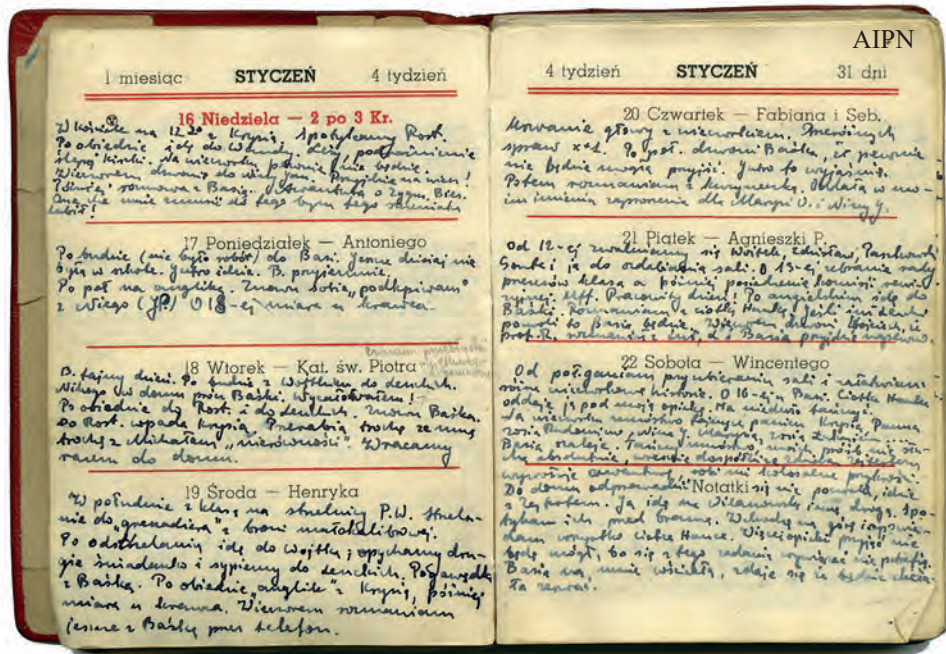 1 miesiąc STYCZEŃ 4 tydzień
16 Niedziela — 2 po 3 Kr.
W kościele na 12.20 z Krysią, spotykamy Rost.
Po obiedzie idę do
Na wieczorku pewnie nie będzie.
Wieczorem dzwonię do
rozmowa z Basią. Awantura o Zygm. Bies.
Ona nie mnie zmusi do tego bym tego
lubił!
17 Poniedziałek — Antoniego
Po budzie (nie było robót) do Basi. Jeszcze dzisiaj nie
była w szkole. Jutro idzie. B. przyjemnie.
Po poł na anglika. Znowu sobie „podkpiwam"
z niego (JP.) O 18-ej miara u krawca.
18 Wtorek — Kat. św. Piotra
B. fajny dzień. Po budzie z Wojtkiem do
Nikogo w domu prócz Baśki.
Po obiedzie do Rost. i do Znowu Baśka.
Do Rost. wpada Krysia. Przerabia trochę ze mną
trochę z Michałem „nierówności". Wracamy
razem do domu.
19 Środa — Henryka
W południe z klasą na strzelnicy P.W. strzela-
nie do „grenadiera" z broni małokalibrowej.
Po odstrzelaniu idę do Wojtka; opychamy dru-
gie śniadanko i sypiemy do Pogawędka
z Baśką. Po obiedzie „anglik" z Krysią, później
miara u krawca. Wieczorem rozmawiam
jeszcze z Baśką przez telefon.
AIPN
4 tydzień STYCZEŃ 31 dni
20 Czwartek — Fabiana i Seb.
głowy z wieczorkiem. Przeróżnych
spraw Po poł. dzwoni Baśka, że pewnie
nie będzie mogła przyjść. Jutro to wyjaśnię.
Potem rozmawiam z
imieniu zaproszenia dla Marysi U. i Niny J.
21 Piątek — Agnieszki P.
Od 12-ej zwalniamy się Wojtek, Zdzisław,
i ja do ozdabiania sali. O 13-ej zebranie rady
prezesów klasa a później posiedzenie komisji rewi-
zyjnej. Uff. Pracowity dzień! Po angielskim idę do
Baśki. Rozmawiam z ciotką Hanką. Jeśli
pozwoli to Basia będzie. Wieczorem dzwoni
prof. R. rozmawiał z nią, i Basia przyjdzie
22 Sobota — Wincentego
Od południa przybieranie sali i załatwianie
różne wieczorkowe historie. O 16-ej u Basi. Ciotka Hanka
oddaje ją pod moją opiekę. Na niedźwia tańczy.
Na wieczorku mnóstwo fajnych panien Krysia, Panna
Zosia Rudomino, Nina J. Marysia, Zosia
Basia szaleje. Tańczy mnóstwo moich próśb nie słu-
cha absolutnie, wreszcie
wyprawia awantury, robi mi kolosalne przykrości.
Notatki
Do domu odprowadzić się nie pozwala, idzie
z Zygmuntem. Ja idę na Wilanowską inną drogą. Spo-
tykam ich przed bramą. Wchodzę na górę i opowia-
dam wszystko ciotce Hance. Więcej opieki przyjąć nie
będę mógł, bo się z tego zadania wywiązać nie potrafię.
Basia na mnie wściekła, zdaje się że będzie chcia-
ła zerwać.